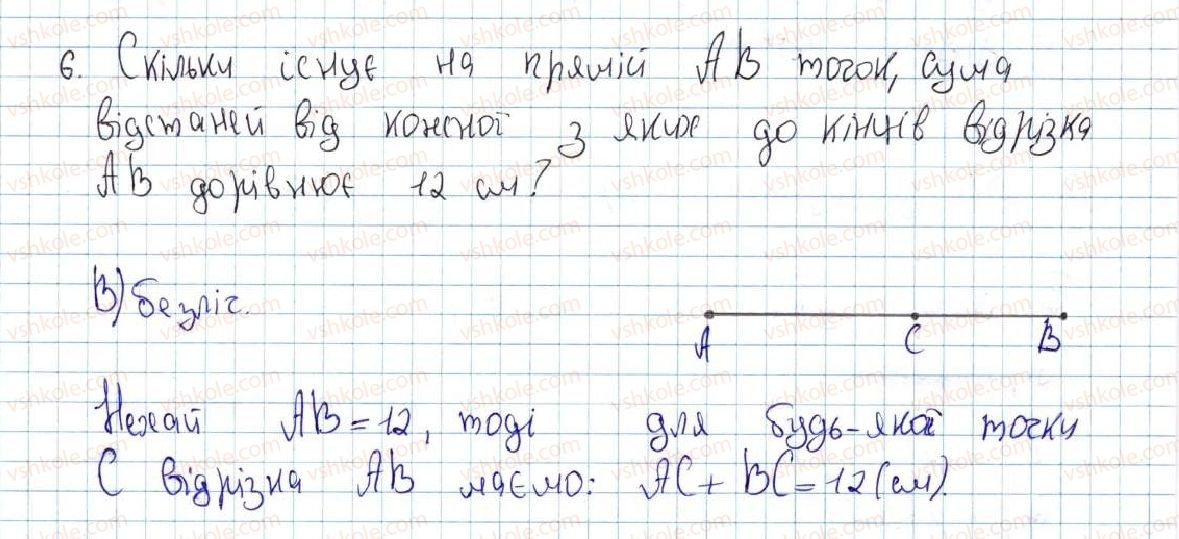 6. Скільки існує на прямій АВ точок, сума
відстаней від кожної з яких до кінців відрізка
АВ дорівнює 12 см?
В) безліч.
А С В
Нехай АВ = 12, тоді для будь-якої точки
С відрізка АВ маємо: АС + ВС = 12 (см).
vshkole.com